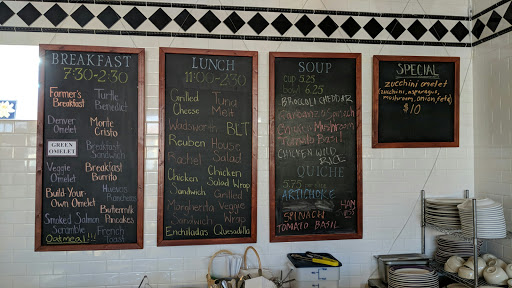 BREAKFAST
7:30-2:30
Farmer's
Breakfast
Turtle
Denver
Omelet
Monte
Cristo
GREEN
OMELET
Breakfast
Sandwich
Veggie
Omelet
Breakfast
Burrito
Build-Your-
Own Omelet
Huevos
Rancheros
Smoked Salmon
Scramble
Buttermilk
Pancakes
Oatmeal!!!
French
Toast
LUNCH
11:00-2:30
Grilled
Cheese
Tuna
Melt
Wadsworth
BLT
Reuben
House
Salad
Rachel
Chicken
Sandwich
Chicken
Salad Wrap
Margherita
Sandwich
Grilled
Veggie
Wrap
Enchiladas
Quesadilla
SOUP
cup 5.25
bowl 6.25
BROCCOLI CHEDDAR
Garbanzo Spinach
Mushroom
Tomato Basil
CHICKEN WILD
RICE
QUICHE
5.75
ARTICHOKE
HAM
SPINACH
TOMATO BASIL
SPECIAL
zucchini omelet
(zucchini, asparagus,
mushroom, onion, feta)
$10